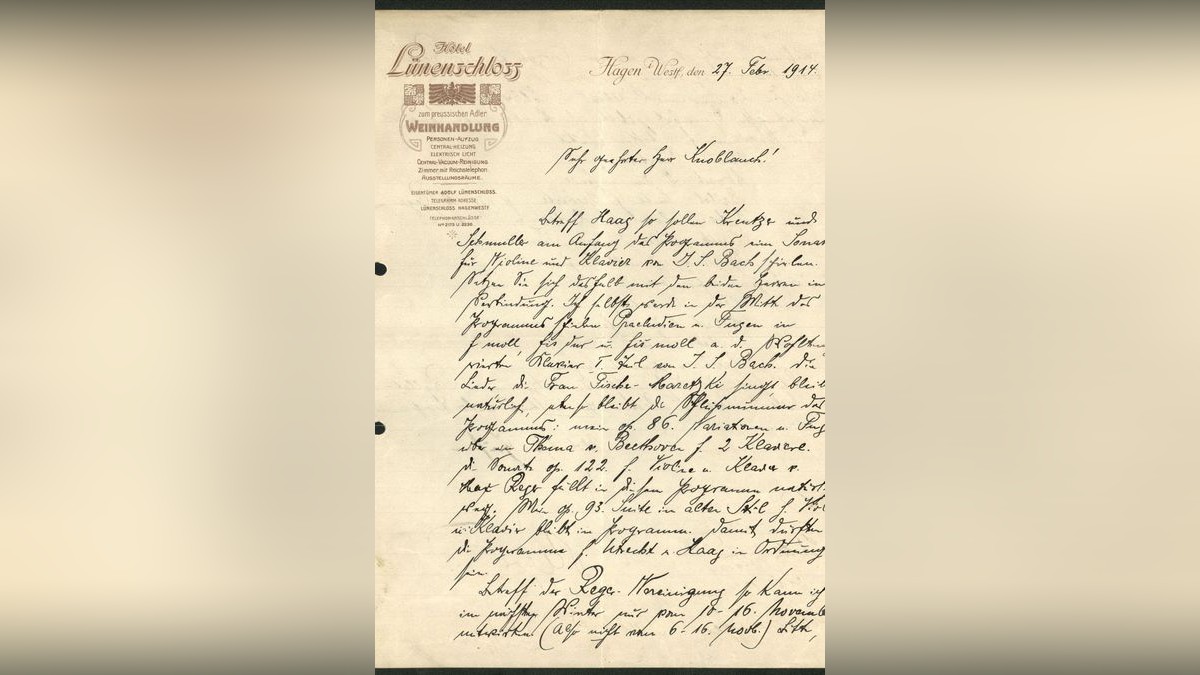 Hôtel
Lünenschloss
zum preussischen Adler
WEINHANDLUNG
PERSONEN-AUFZUG
CENTRAL-HEIZUNG
ELEKTRISCH LICHT
CENTRAL-VACUUM-REINIGUNG
Zimmer mit Reichstelephon
AUSSTELLUNGSRÄUME.
EIGENTÜMER ADOLF LÜNENSCHLOSS.
TELEGRAMM-ADRESSE
LÜNENSCHLOSS HAGENWESTF.
TELEPHONANSCHLÜSSE
Hagen Westf., den 27. Febr. 1914.
Sehr geehrter Herr Knoblauch!
Betreff Haag so sollen Kreutzer und
Schmuller am Anfang des Programms eine Sonat
für Violine und Klavier von J. S. Bach spielen.
Setzen Sie sich deshalb mit den beiden Herren in
Verbindung. Ich selbst werde in der Mitte des
Programms spielen Praeludien u. Fugen in
f moll, fis dur u. fis moll a. d. Wohltem
perierten Klavier I. Teil von J. S. Bach. Die
Lieder die Frau Fischer-Maretzki singt, bleib
natürlich, ebenso bleibt die Schlußnummer des
Programms: mein op. 86. Variationen u. Fug
über ein Thema v. Beethoven f. 2 Klaviere.
die Sonate op. 122. f. Violine u. Klavier v.
Max Reger fällt in diesem Programm natürl.
weg; Mein op. 93. Suite im alten Stil f. Viol
u. Klavier bleibt im Programm. Damit dürften
die Programme f. Utrecht u. Haag in Ordnung
sein.
Betreff der Reger-Vereinigung so kann ich
im nächsten Winter nur vom 10-16. Novemb
mitwirken (also nicht vom 6-16. Novb.) Bitte,